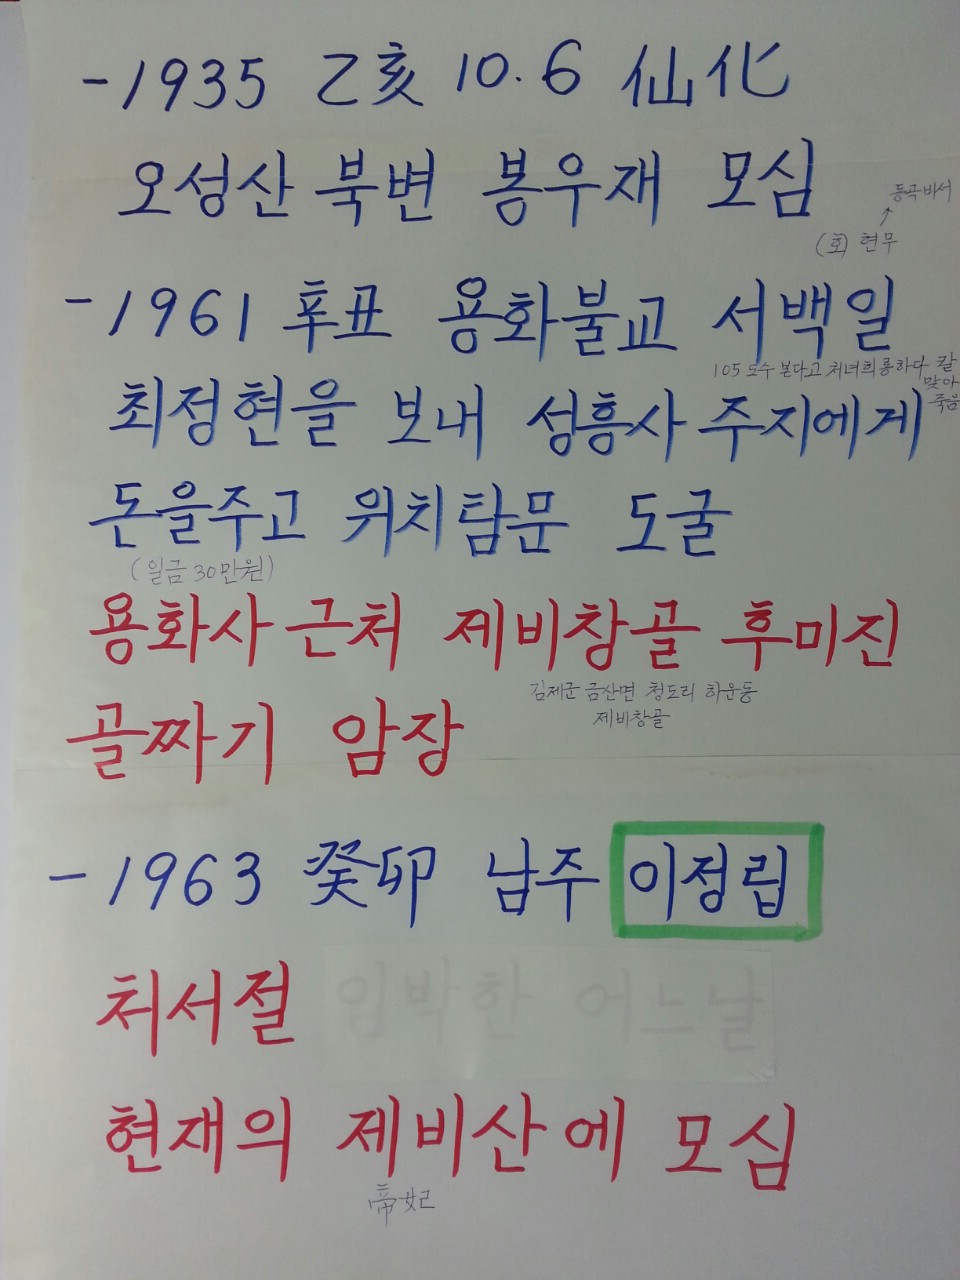 -1935 乙亥 10.6 仙化
오성산 북변 봉우재 모심
동곡비서
↑
(호) 현무
-1961 辛丑 용화불교 서백일
105 도수 본다고 처녀희롱하다 칼
맞아
죽음
최정현을 보내 성흥사 주지에게
돈을주고 위치탐문 도굴
(일금 30만원)
용화사 근처 제비창골 후미진
김제군 금산면 청도리 하운동
제비창골
골짜기 암장
-1963 癸卯 남주 이정립
처서절 임박한 어느날
현재의 제비산에 모심
帝妃